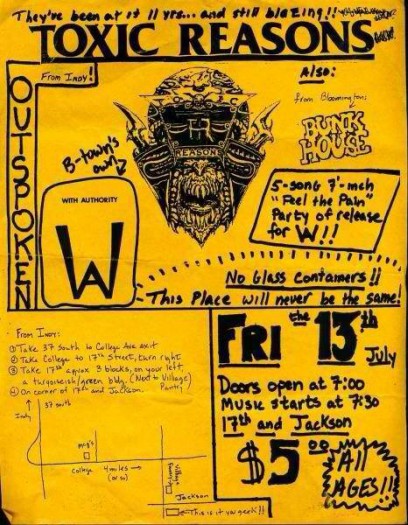 They've been at it 11 yrs... and still blazing!!
TOXIC REASONS
From Indy!
OUTSPOKEN
B-town's own!
WITH AUTHORITY
W
REASON
Also:
from Bloomington:
PUNK HOUSE
5-song 7"-inch
"Feel the Pain"
Party of release
for W!!
No Glass Containers!!
This Place will never be the same!
From Indy:
① Take 37 south to College Ave exit
② Take College to 17th Street, turn right
③ Take 17th aprox 3 blocks, on your left,
a turquoiseish/green bldg. (Next to Village Pantry)
④ On corner of 17th and Jackson.
37 south
Indy
College
4 miles →
(or so)
Village
Jackson
←This is it you geek!!
FRI the 13th
July
Doors open at 7:00
Music starts at 7:30
17th and Jackson
$5.00
All
AGES!!